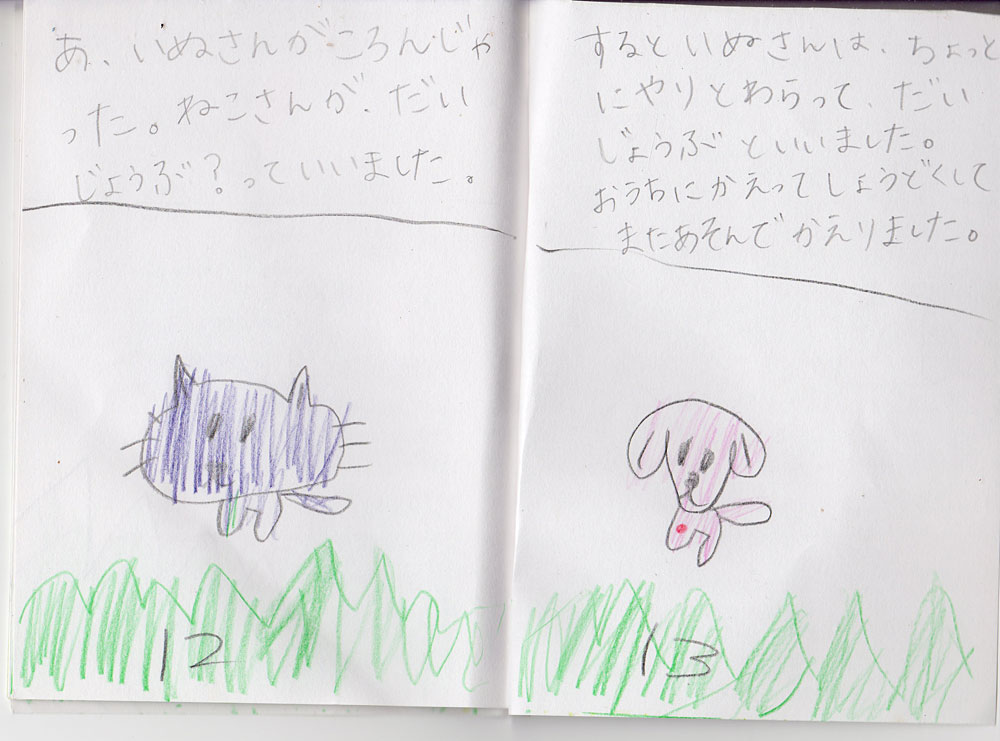 あ、いぬさんがころんじゃ
った。ねこさんが、だい
じょうぶ？っていいました。
12
するといぬさんは、ちょっと
にやりとわらって、だい
じょうぶといいました。
おうちにかえってしょうどくして
またあそんでかえりました。
13